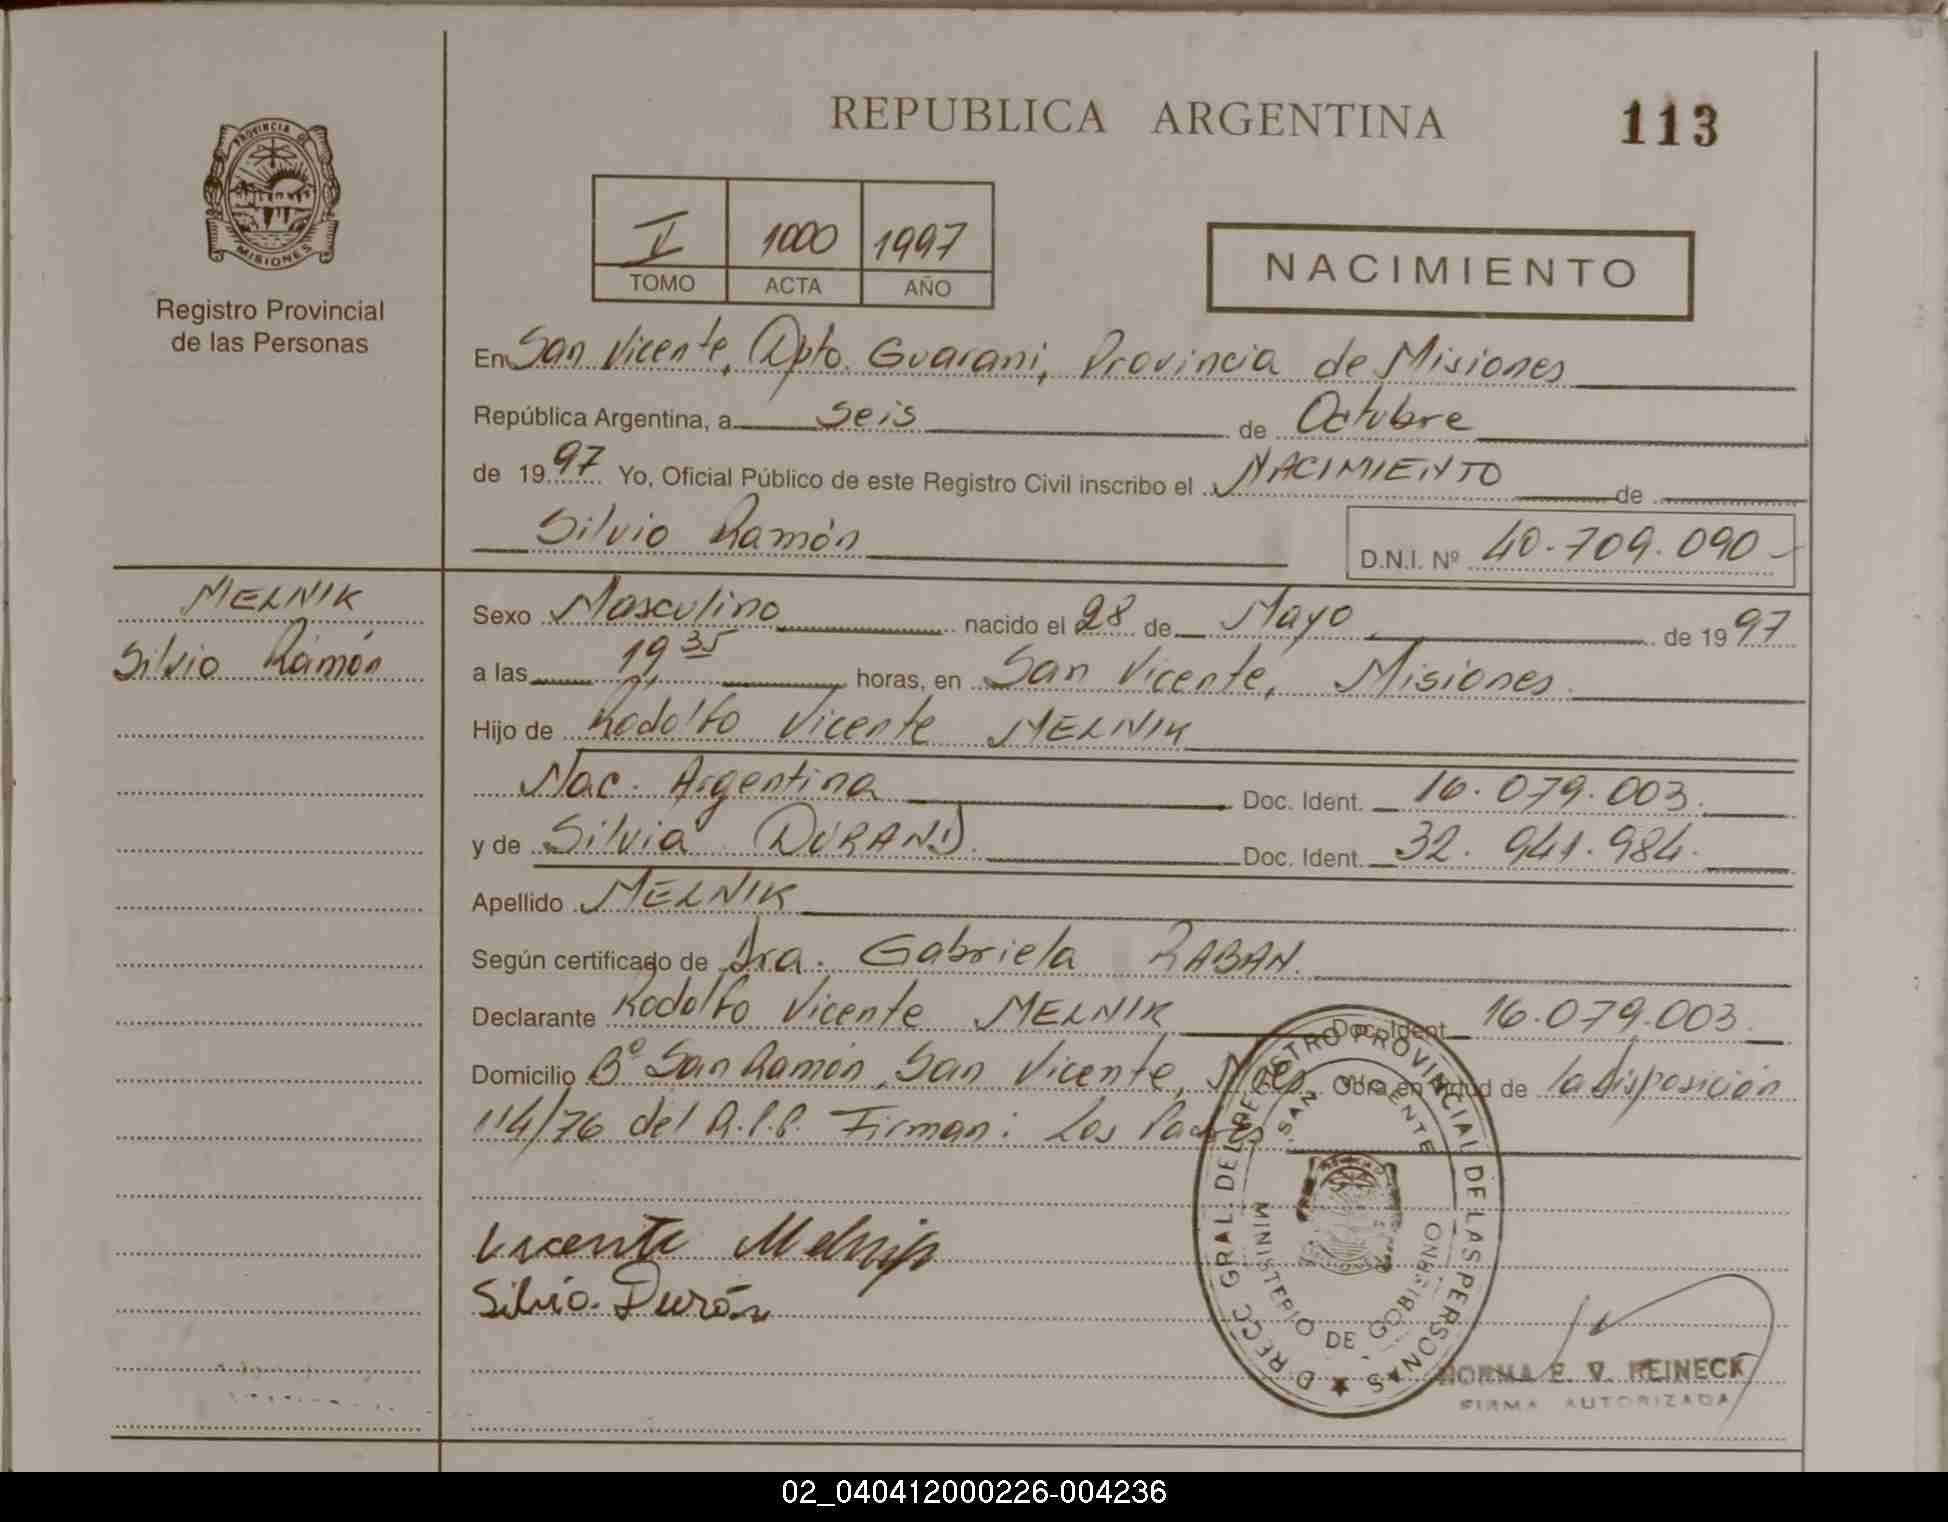 REPUBLICA ARGENTINA
113
PROVINCIA DE
MISIONES
Registro Provincial
de las Personas
1000 1997
TOMO ACTA AÑO
NACIMIENTO
En San Vicente, Dpto. Guarani, Provincia de Misiones
República Argentina, a seis de Octubre
de 1997 Yo, Oficial Público de este Registro Civil inscribo el NACIMIENTO de
Silvio Ramón
D.N.I. Nº 40.709.090
MELNIK
Silvio Ramón
Sexo Masculino nacido el 28 de Mayo de 1997
a las 19 35 horas, en San Vicente, Misiones
Hijo de Rodolfo Vicente MELNIK
Nac. Argentina Doc. Ident. 16.079.003.
y de Silvia DURAND. Doc. Ident. 32.941.984.
Apellido MELNIK
Según certificado de Dra. Gabriela RABAN.
Declarante Rodolfo Vicente MELNIK Doc. Ident. 16.079.003.
Domicilio Bº San Ramón, San Vicente, Mnes. Obra en virtud de la disposición
114/76 del R.P.P. Firman: Los Padres
Vicente Melnik
Silvia Durán
DIRECC GRAL DEL REGISTRO PROVINCIAL DE LAS PERSONAS
SAN VICENTE
MINISTERIO DE GOBIERNO
NORMA E. V. REINECK
FIRMA AUTORIZADA
02_040412000226-004236